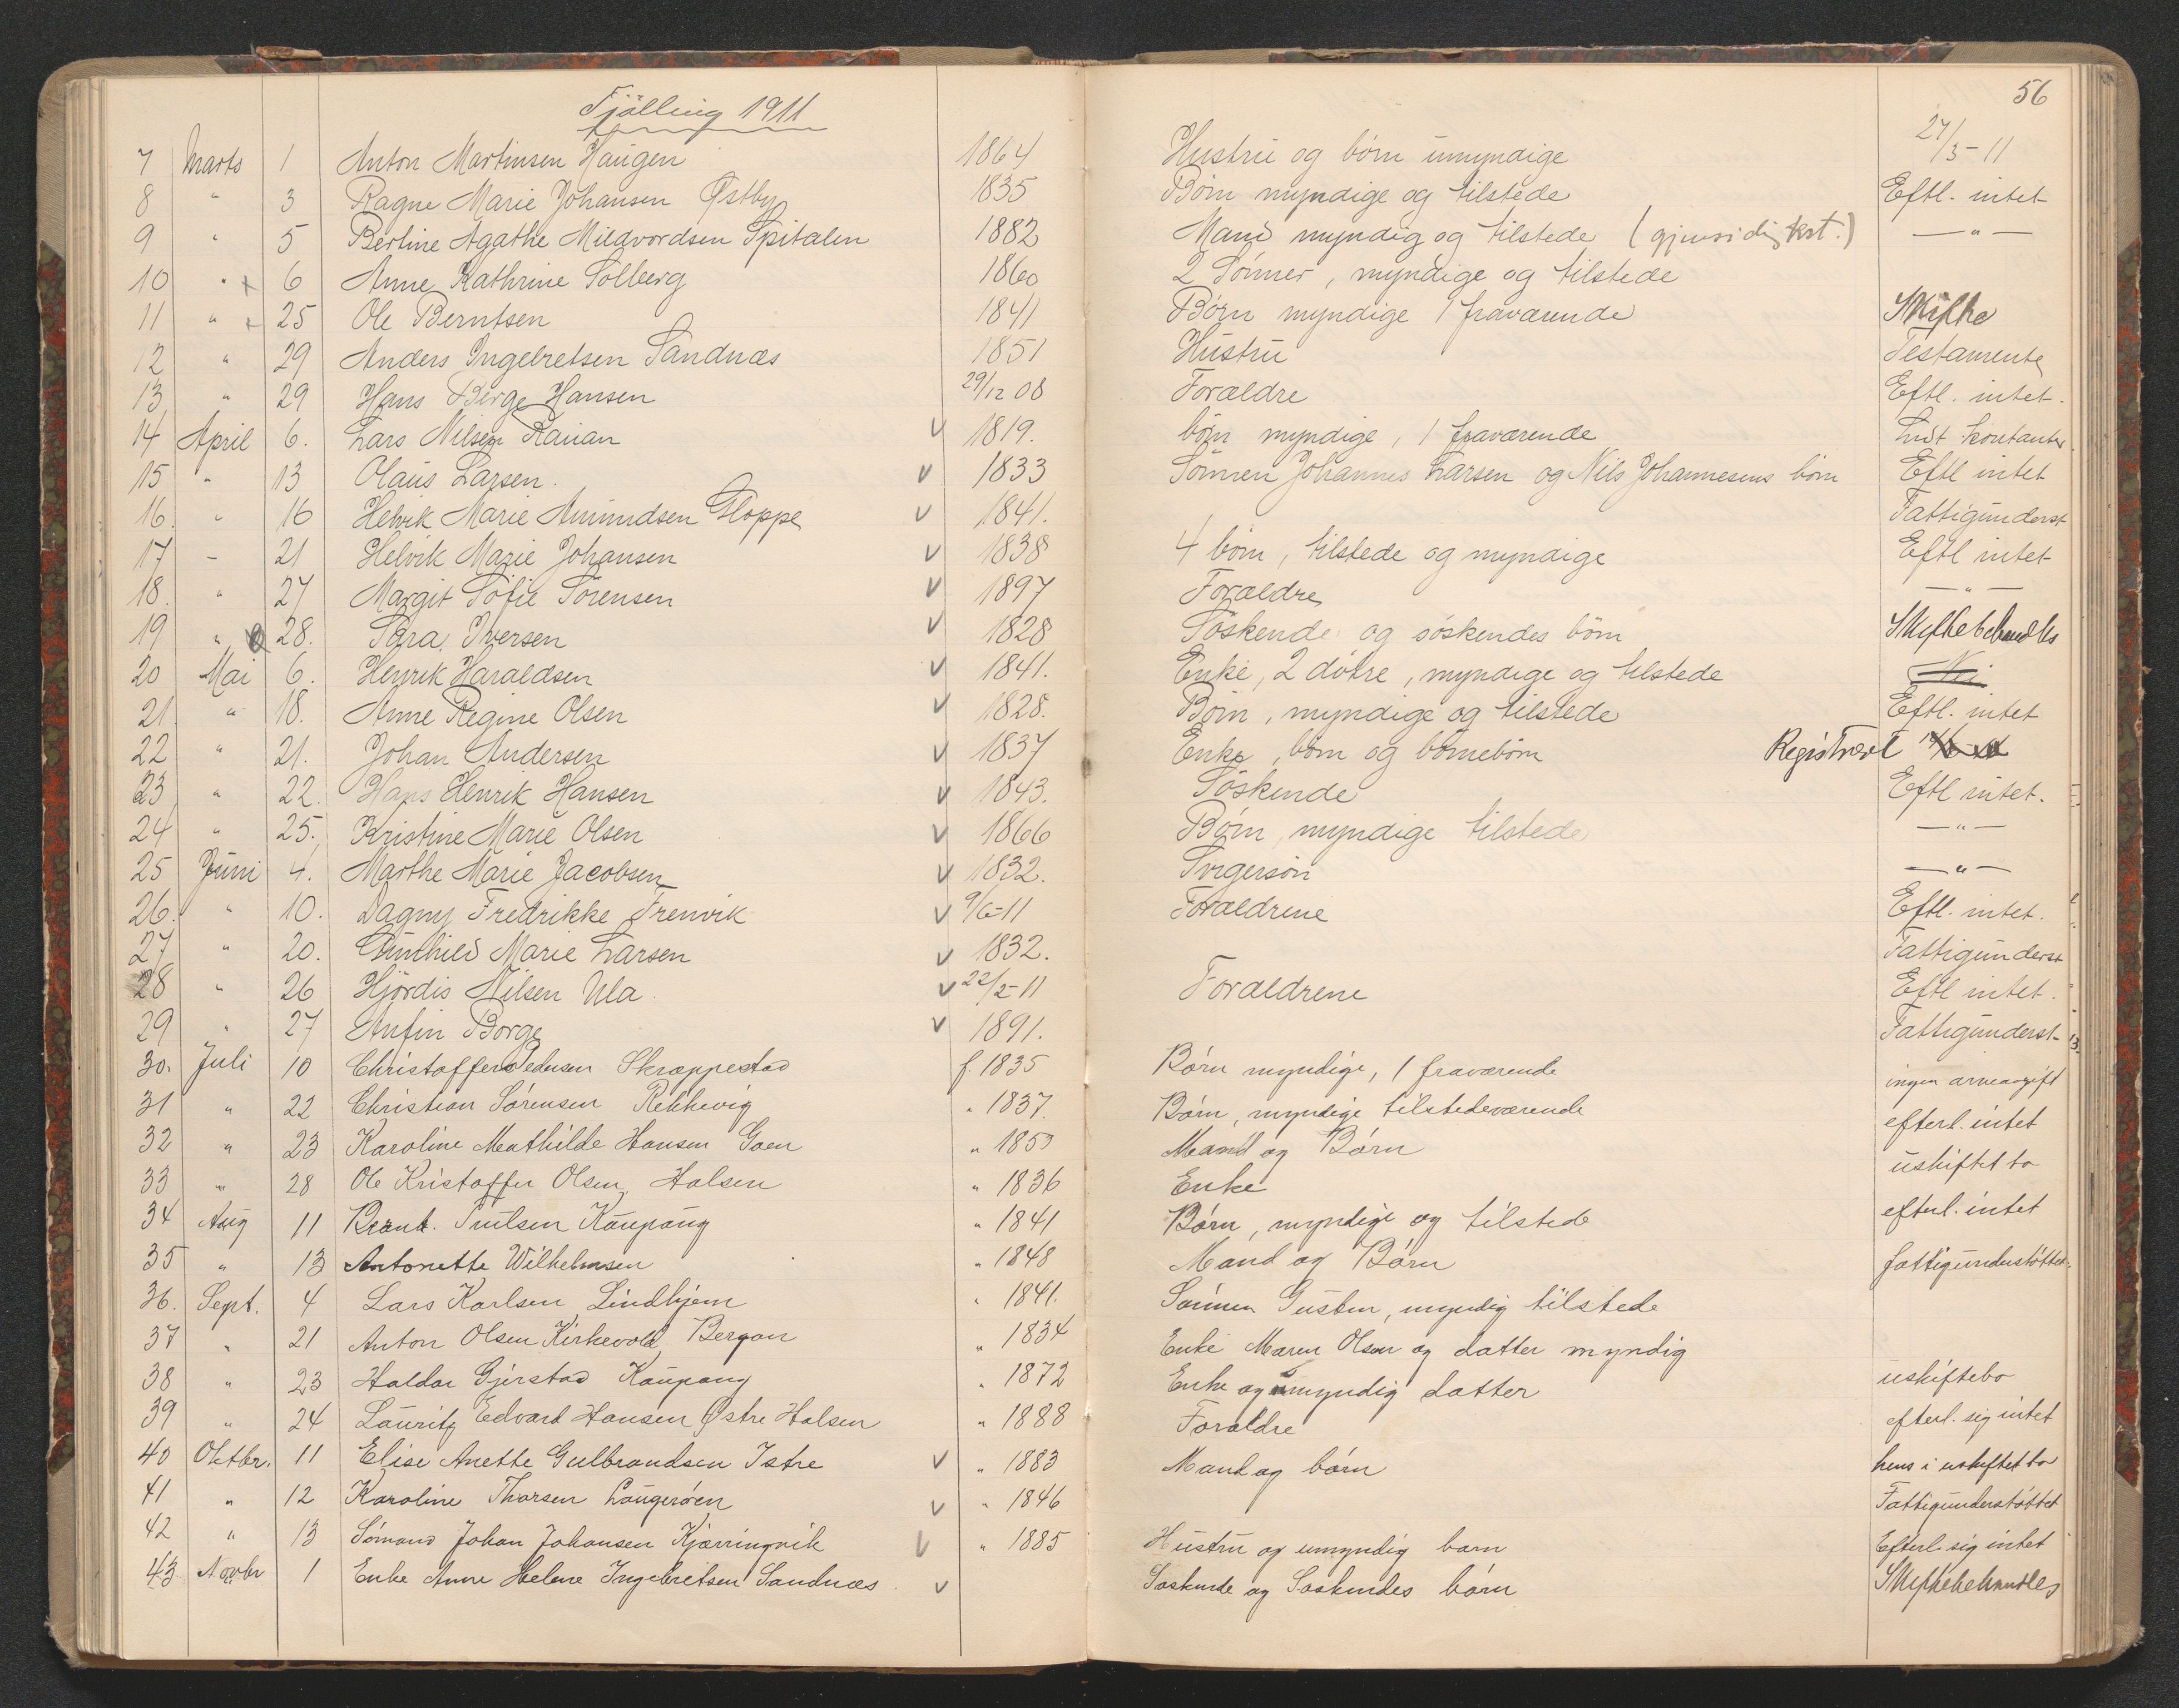 56
Tjølling 1911
7 Marts 1 Anton Martinsen Haugen 1864 Hustru og børn umyndige 27/3-11
8 " 3 Ragne Marie Johansen Østby 1835 Børn myndige og tilstede Eftl. intet
9 " 5 Bertine Agathe Mildvordsen Spitalen 1882 Mand myndig og tilstede (gjensidig test.) — " —
10 " + 6 Anne Kathrine Solberg 1860 2 Sønner, myndige og tilstede
11 " + 25 Ole Berntsen 1841 Børn myndige 1 fraværende Skifte
12 " 29 Anders Ingebretsen Sandnæs 1851 Hustru Testamente
13 " 29 Hans Børge Hansen 29/12 08 Forældre Eftl. intet.
14 April 6. Lars Nilsen Rauan v 1819. børn myndige, 1 fraværende kontanter
15 " 13 Olaus Larsen. v 1833 Sønnen Johannes Larsen og Nils Johannesens børn Eftl intet
16. " 16 Helvik Marie Amundsen Gloppe v 1841. Fattigunderst
17 - 21 Helvik Marie Johansen v 1838 4 børn, tilstede og myndige Eftl intet
18. " 27 Margit Sofie Sørensen v 1897 Forældre — " —
19 " 28. Sara Iversen v 1828 Søskende og søskendes børn Skiftebehandles
20 Mai 6. Henrik Haraldsen v 1841. Enke, 2 døtre, myndige og tilstede Nei
21 " 18. Anne Regine Olsen v 1828. Børn, myndige og tilstede Eftl. intet
22 " 21. Johan Andersen v 1837 Enke, børn og børnebørn Registrert
23 " 22. Hans Henrik Hansen v 1843. Søskende Eftl intet.
24 " 25. Kristine Marie Olsen v 1866 Børn, myndige tilstede — " —
25 Juni 4. Marthe Marie Jacobsen v 1832. Svigersøn — " —
26. " 10. Dagny Fredrikke Frenvik v 9/6-11 Forældrene Eftl. intet.
27 " 20. Gunhild Marie Larsen v 1832. Fattigunderst
28 " 26 Hjørdis Nilsen Ula v 22/2-11 Forældrene Eftl intet.
29 " 27 Anfin Borge v 1891. Fattigunderst.
30. Juli 10 Christoffer Pedersen Skræppestad f. 1835 Børn myndige, 1 fraværende ingen arveavgift
31 " 22 Christian Sørensen Rekkevig " 1837. Børn, myndige tilstedeværende efterl. intet
32 " 23 Karoline Mathilde Hansen Goen " 1850 Mand og Børn uskiftet bo
33 " 28 Ole Kristoffer Olsen Halsen " 1836 Enke efterl. intet
34 Aug 11 Bernt. Paulsen Kaupang " 1841 Børn, myndige og tilstede
35 " 13 Antonette Wilhelmsen " 1848 Mand og Børn fattigunderstøttet.
36. Sept. 4 Lars Karlsen Lindhjem " 1841. Sønnen Gusten, myndig tilstede
37 " 21 Anton Olsen Kirkevold, Bergan " 1834 Enke Maren Olsen og datter myndig
38 " 23 Haldor Gjerstad Kaupang " 1872 Enke og umyndig datter uskiftebo
39 " 24 Lauritz Edvard Hansen Østre Halsen " 1888 Forældre efterl. sig intet
40 Oktbr. 11 Elise Anette Gulbrandsen Istre v " 1883 Mand og børn hens i uskiftet bo
41 " 12 Karoline Thorsen Laugerøen v " 1846 Fattigunderstøttet
42 " 13 Sømand Johan Johansen Kjærringvik v " 1885 Hustru og umyndig barn Efterl. sig intet
43 Novbr 1 Enke Anne Helene Ingebretsen Sandnæs v Søskende og Søskendes børn Skiftebehandles